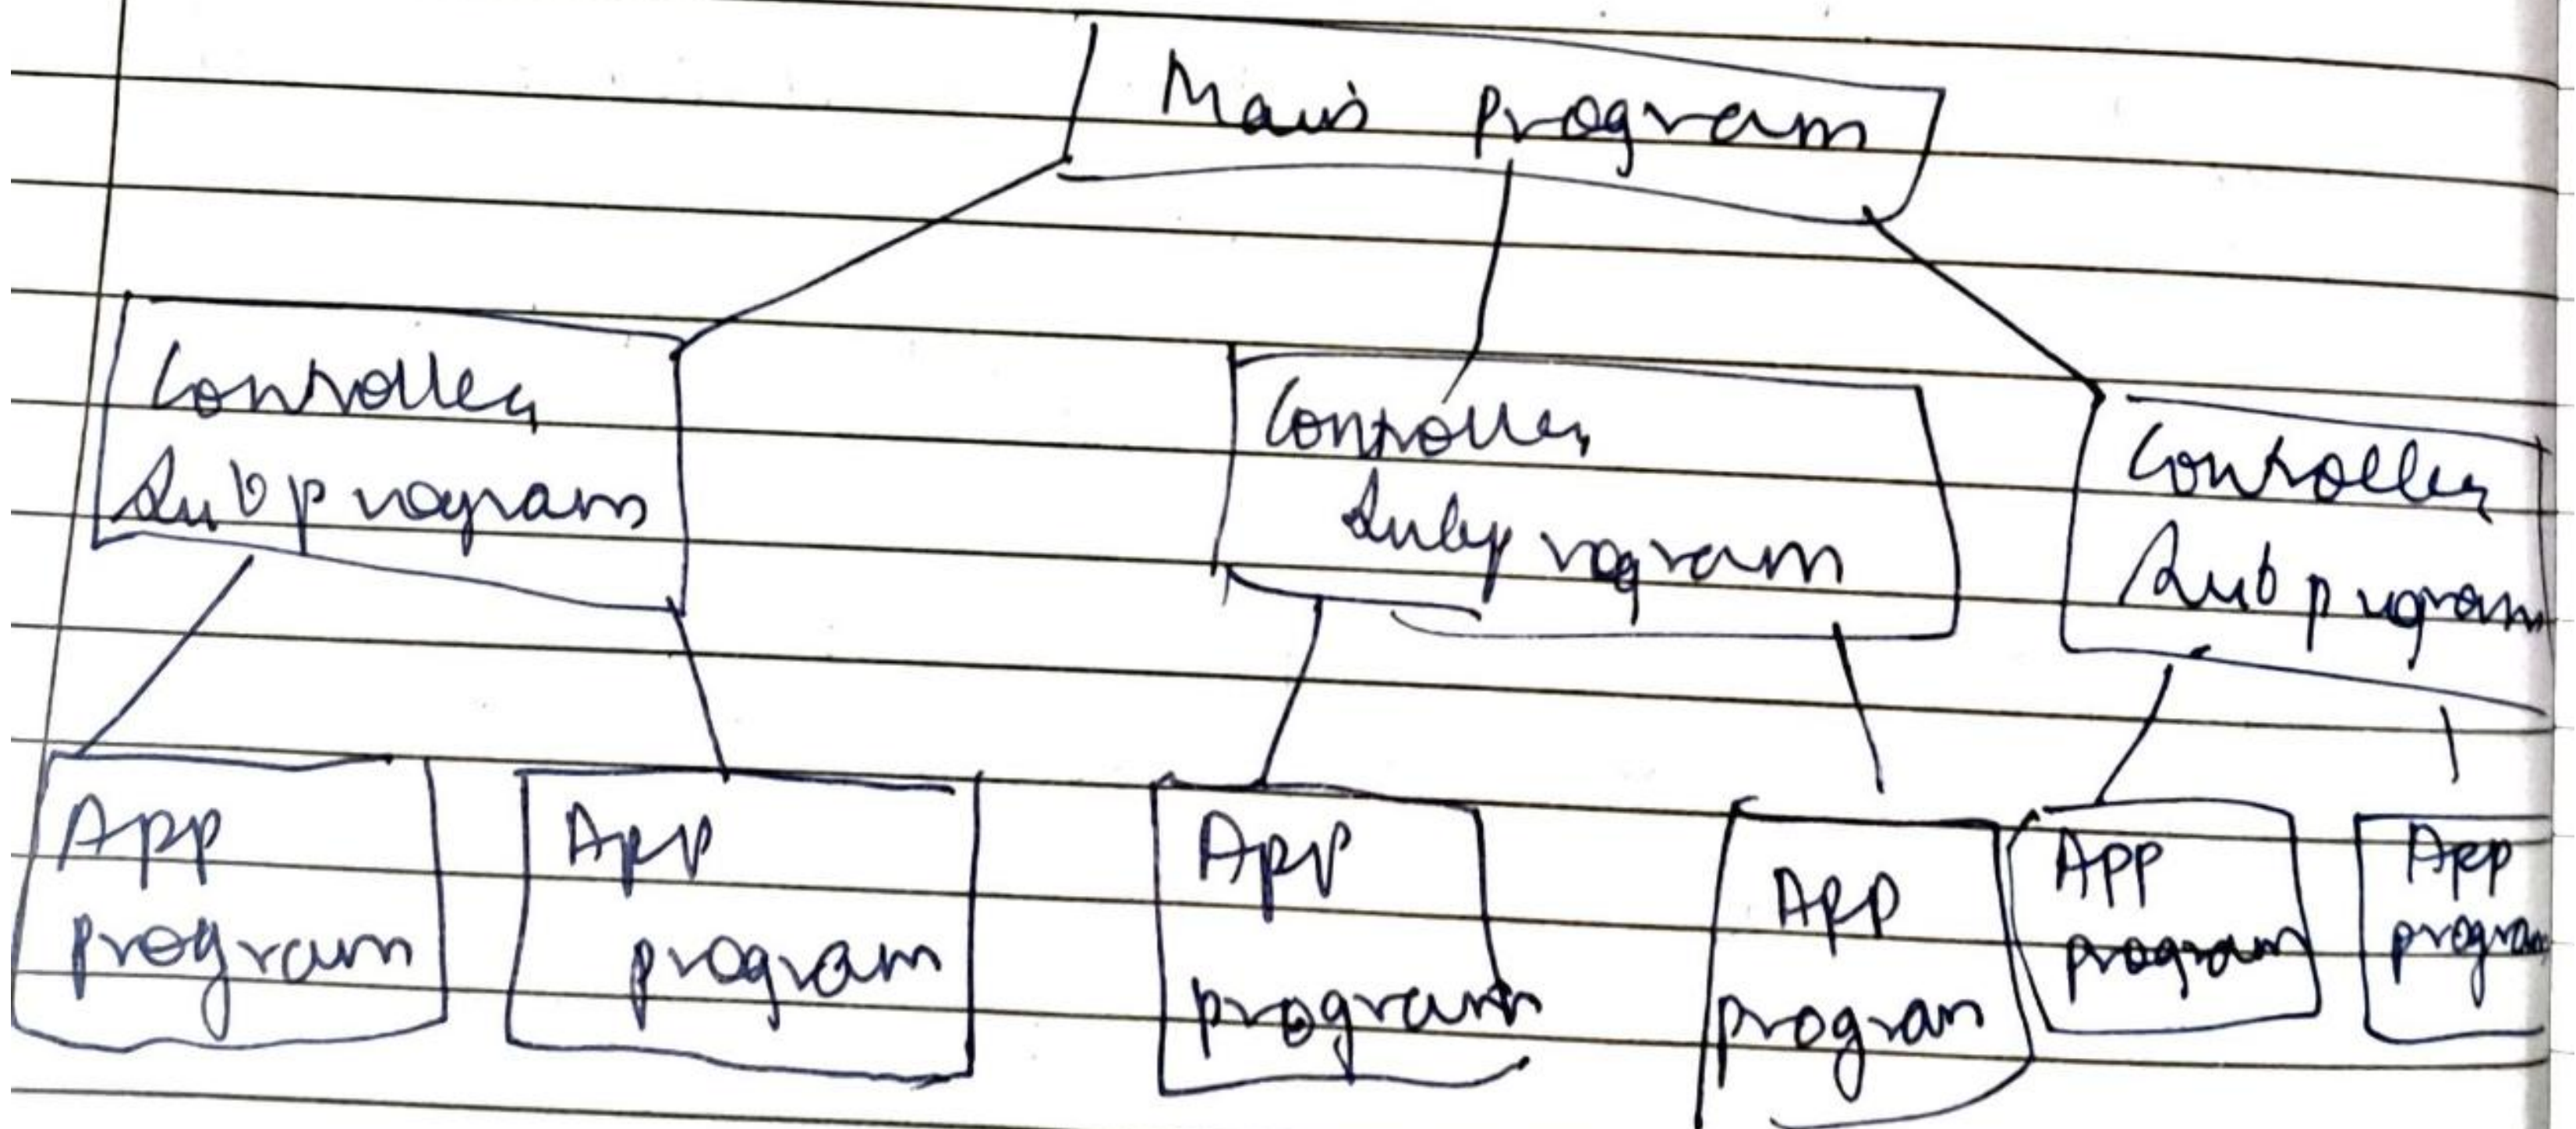 Main program
Controller
Subprogram
Controller
Subprogram
Controller
Subprogram
App
program
App
program
App
program
App
program
App
program
App
program